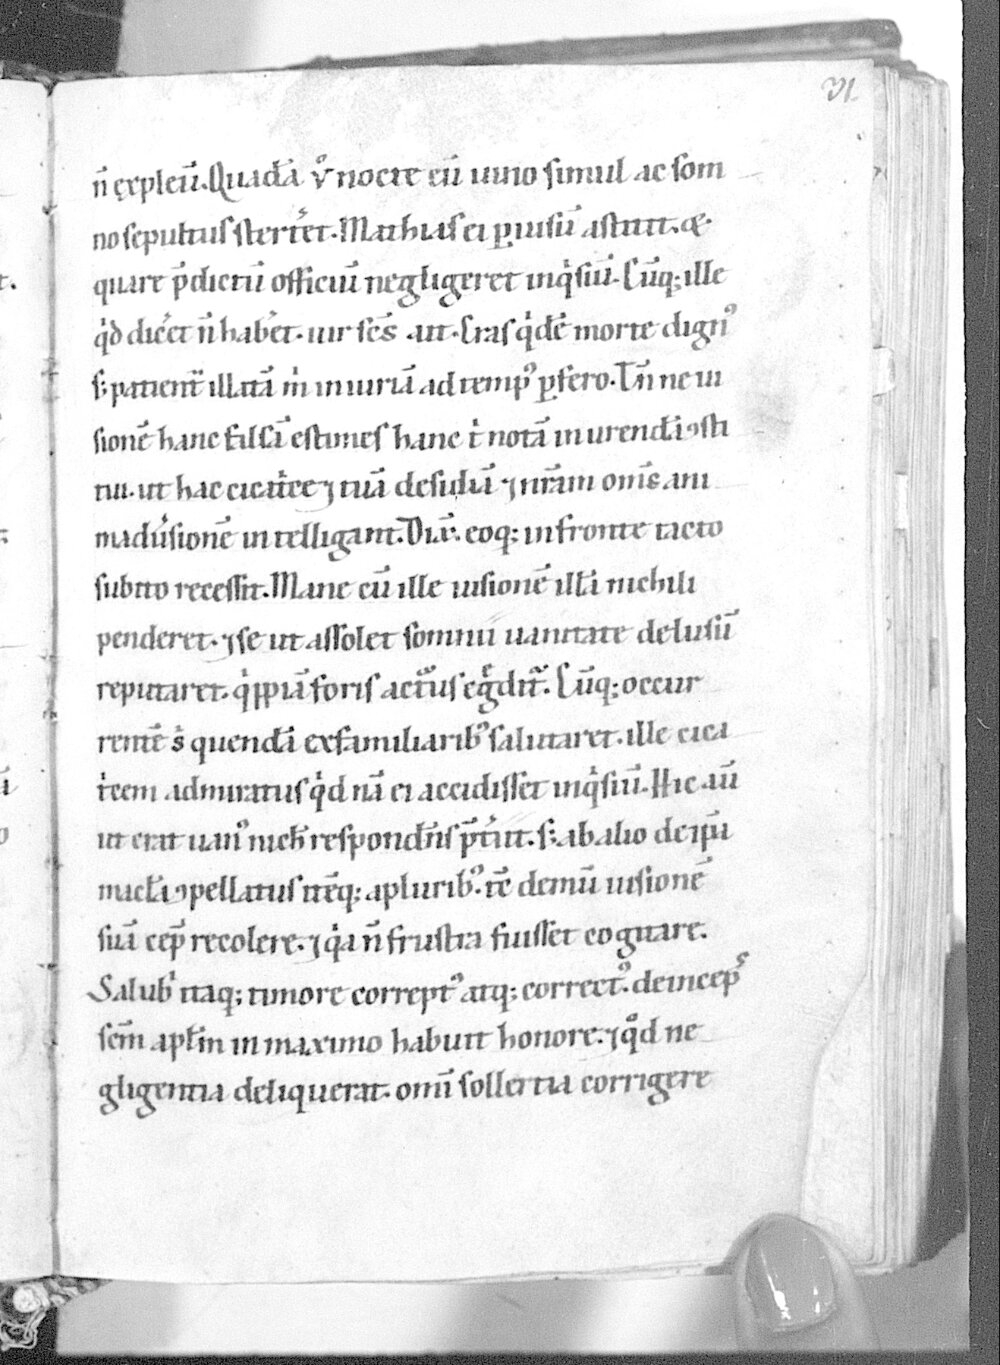 VI
n̄ expleu̅. Quada̅ v̊ nocte cu̅ uino simul ac som
no sepultus sterte͛t. Mathias ei p̱ uisu̅ astitit. &
quare p̄dictu̅ officiu̅ negligeret inqͥsiuͥ. Cu̅q; ille
qͥd dice͛t n̄ habe͛t. uir sc̄s .ait. Cras qͥde̅ morte dignꝰ
s; patient̾ illata̅ mͥ iniuria̅ ad tempꝰ p̱fero. Tn̄ ne ui
sione̅ hanc falsa̅ estimes hanc tͥ nota̅ inurenda̅ ꝯsti
tui. ut hac cicatͥce ⁊ tua̅ desidia̅ ⁊ nr̄am om̄s ani
madu͛sione̅ intelligant. Dix̄. eoq; in fronte tacto
subito recessit. Mane cu̅ ille uisione̅ illa̅ nichili
penderet. ⁊ se ut assolet somnii uanitate delusu̅
reputaret. qͥppia̅ foris actuͬus egͬditᷣ. Cu̅q; occur
rente̅ sͥ quenda̅ ex familiaribꝰ salutaret. ille cica
tͥcem admiratus qͥdna̅ ei accidisset inqͥsiuͥ. Hic au̅
ut erat uanꝰ nich̄ respondn̄s p̄tiit. s; ab alio de ipa̅
macl̄a ꝯpellatus ite̅q; a pluribꝰ. te̅ demu̅ uisione̅
sua̅ cep̄ recolere. ⁊ qͥa n̄ frustra fuisset cogitare.
Salubͥ itaq; timore correptꝰ atq; correctꝰ. deincep̄s
sc̄m apl̄m in maximo habuit honore. ⁊ qͦd ne
gligentia deliquerat. om̄i sollertia corrigere